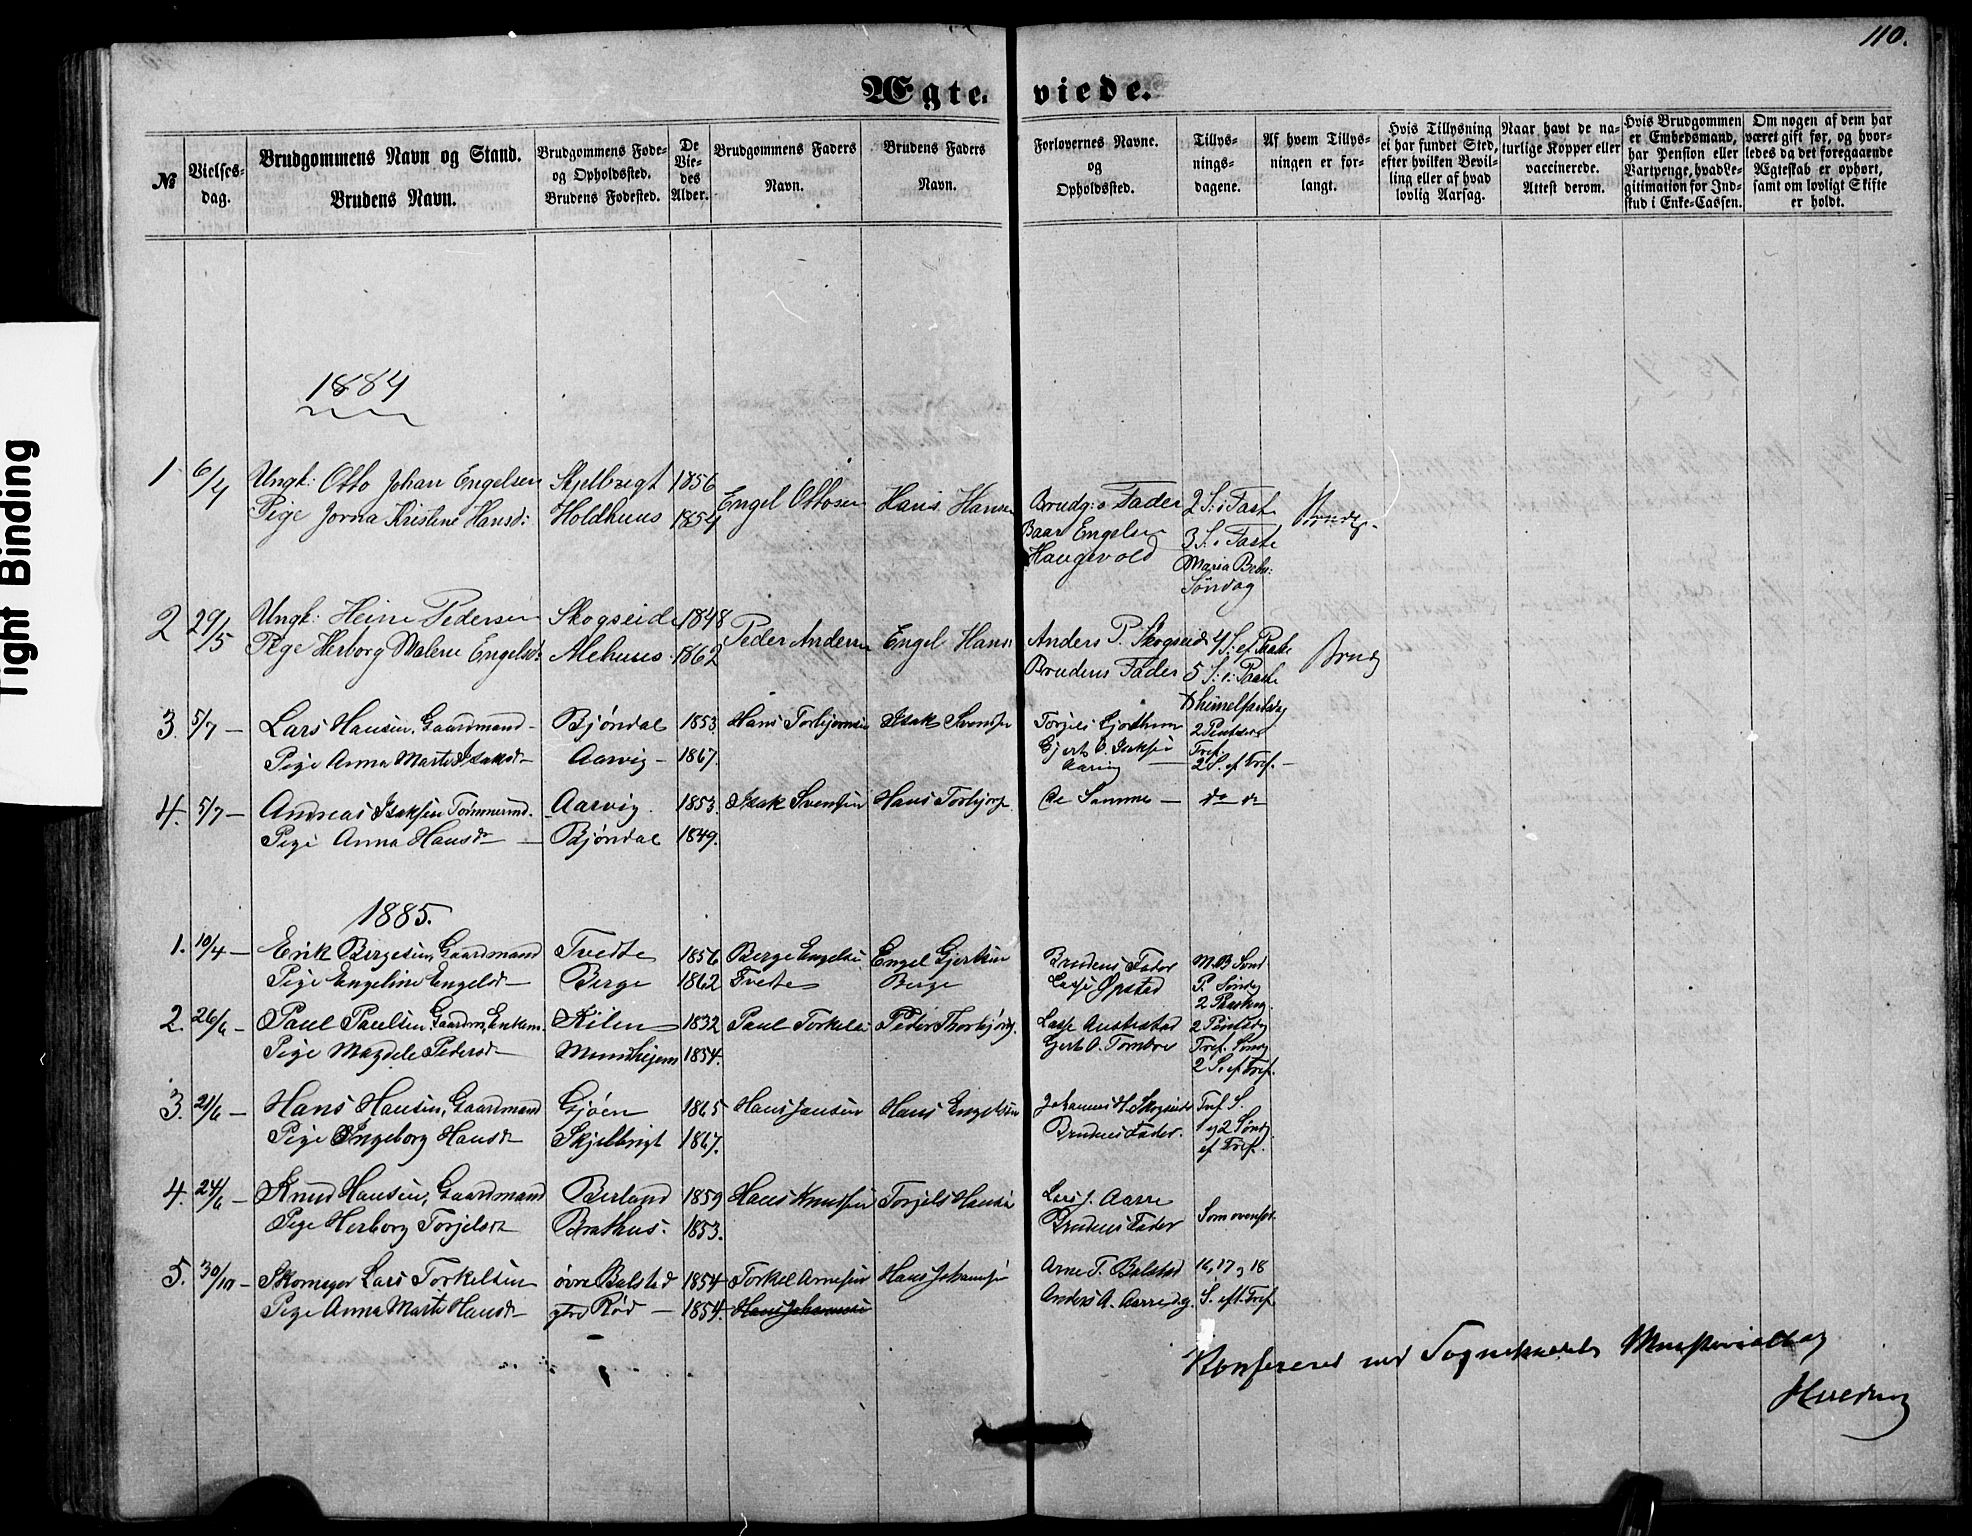 110.
Ægte-viede.
№
Vielses-dag.
Brudgommens Navn og Stand.
Brudens Navn.
Brudgommens Føde- og Opholdssted.
Brudens Fødested.
De Viedes Alder.
Brudgommens Faders Navn.
Brudens Faders Navn.
Forlovernes Navne.
og
Opholdssted.
Tillysningsdagene.
Af hvem Tillysningen er forlangt.
Hvis Tillysning ei har fundet Sted, efter hvilken Bevilling eller af hvad lovlig Aarsag.
Naar havt de naturlige Kopper eller vaccinerede. Attest derom.
Hvis Brudgommen er Embedsmand, har Pension eller Vartpenge, hvad Legitimation for Indskud i Enke-Cassen.
Om nogen af dem har været gift før, og hvorledes da det foregaaende Ægteskab er ophørt, samt om lovligt Skifte er holdt.
1884
1 6/4 Ungk: Otto Johan Engelsen Skjelbreigt 1856 Engel Ottosen Hans Hansen Brudg:s Fader 2 S: i Faste Brudg.
Pige Jorna Kristine Hansd: Holdhuus 1854 Baar Engelsen 3 S: i Faste
Haugevold Maria Beb:
Søndag
2 29/5 Ungk: Heine Pedersen Skogseide 1848 Peder Andersen Engel Hans: Anders P. Skogseid 4 S: ef Paaske Brudg
Pige Herborg Malene Engelsd: Alehuus 1862 Brudens Fader 5 S: e: Paaske
Himmelfartsdag
3. 5/7 - Lars Hansen, Gaardmand - Bjøndal 1853 Hans Torbjørnsen Isak Svensen Torjels
Pige Anna Marte Isaksd - Aarvig - 1867. Gjert O. Isaksen Tref.
Aarvig 2 S. ef Tref. -
4. 5/7 - Andreas Isaksen Tømmermd. Aarvig. 1853. Isak Svensen Hans Torbjørn. De Samme - do do
Pige Anna Hansdr - Bjøndal 1849.
1885.
1. 10/4 - Erik Bergesen, Gaardmand Tvedte 1856 Berge Engelsen Engel Gjertsen Brudens Fader M.B Sønd
Pige Engeline Engelsdr - Berge 1862 Tvedte Berge Opstad P. Søndg
2 Paaskeg.
2. 26/6 - Paul Paulsen Gaardm, Enkem. Kilen 1832 Paul Torkelsen Peder Thorbjørns. Lasse Austestad 2 Pintsedg
Pige Magdele Pedersdr - Mundhejem 1854. Gjert A. Tombre Tref. Søndg
2 S. ef Tref.
3. 21/6 - Hans Hansen, Gaardmand Gjøen 1865 Hans Jansen Hans Engelsen Johannes H. Skogseide Tref S.
Pige Ingeborg Hansdr Skjelbreigt 1867. Brudens Fader. og 2 Søndg.
ef Tref.
4. 24/6 - Knud Hansen, Gaardmand Berland 1859 Hans Knudsen Torjels Hansen Lars J. Aarre
Pige Herborg Torjelsdr Brathus. 1853. Brudens Fader Som ovenfor.
5. 30/10 - Skomager Lars Torkelsen øvre Balstad 1854 Torkel Arnesen Hans Johansen Arne T. Balstad 16, 17 og 18
Pige Anna Marte Hansdr ytre Rød - 1854. Hans Johansen Anders A. Aarre S. eft. Tref
Konfereret med Sognekaldets Ministerialbog
Hveding